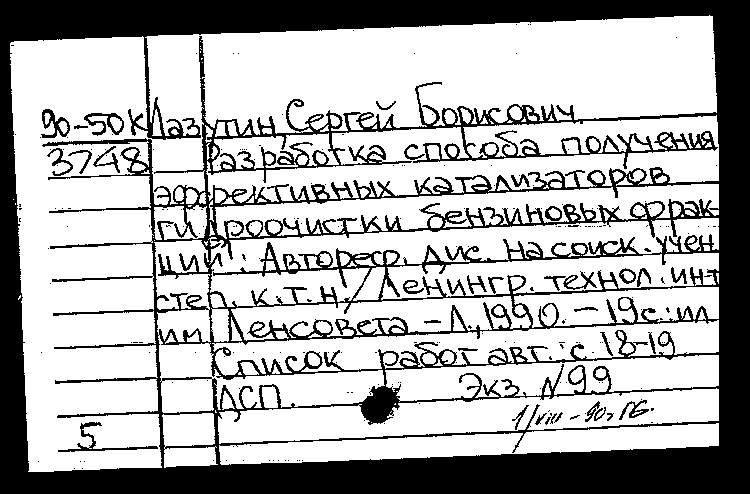 90-50К Лазутин, Сергей Борисович.
3748 Разработка способа получения
эффективных катализаторов
гидроочистки бензиновых фрак-
ций: Автореф. дис. на соиск. учен
степ. к.т.н. / Ленингр. технол. инт
им Ленсовета – Л., 1990. – 19с.:ил
Список работ авт.: с. 18-19
ДСП. Экз. №99
5 1/VIII-90г ГБ.